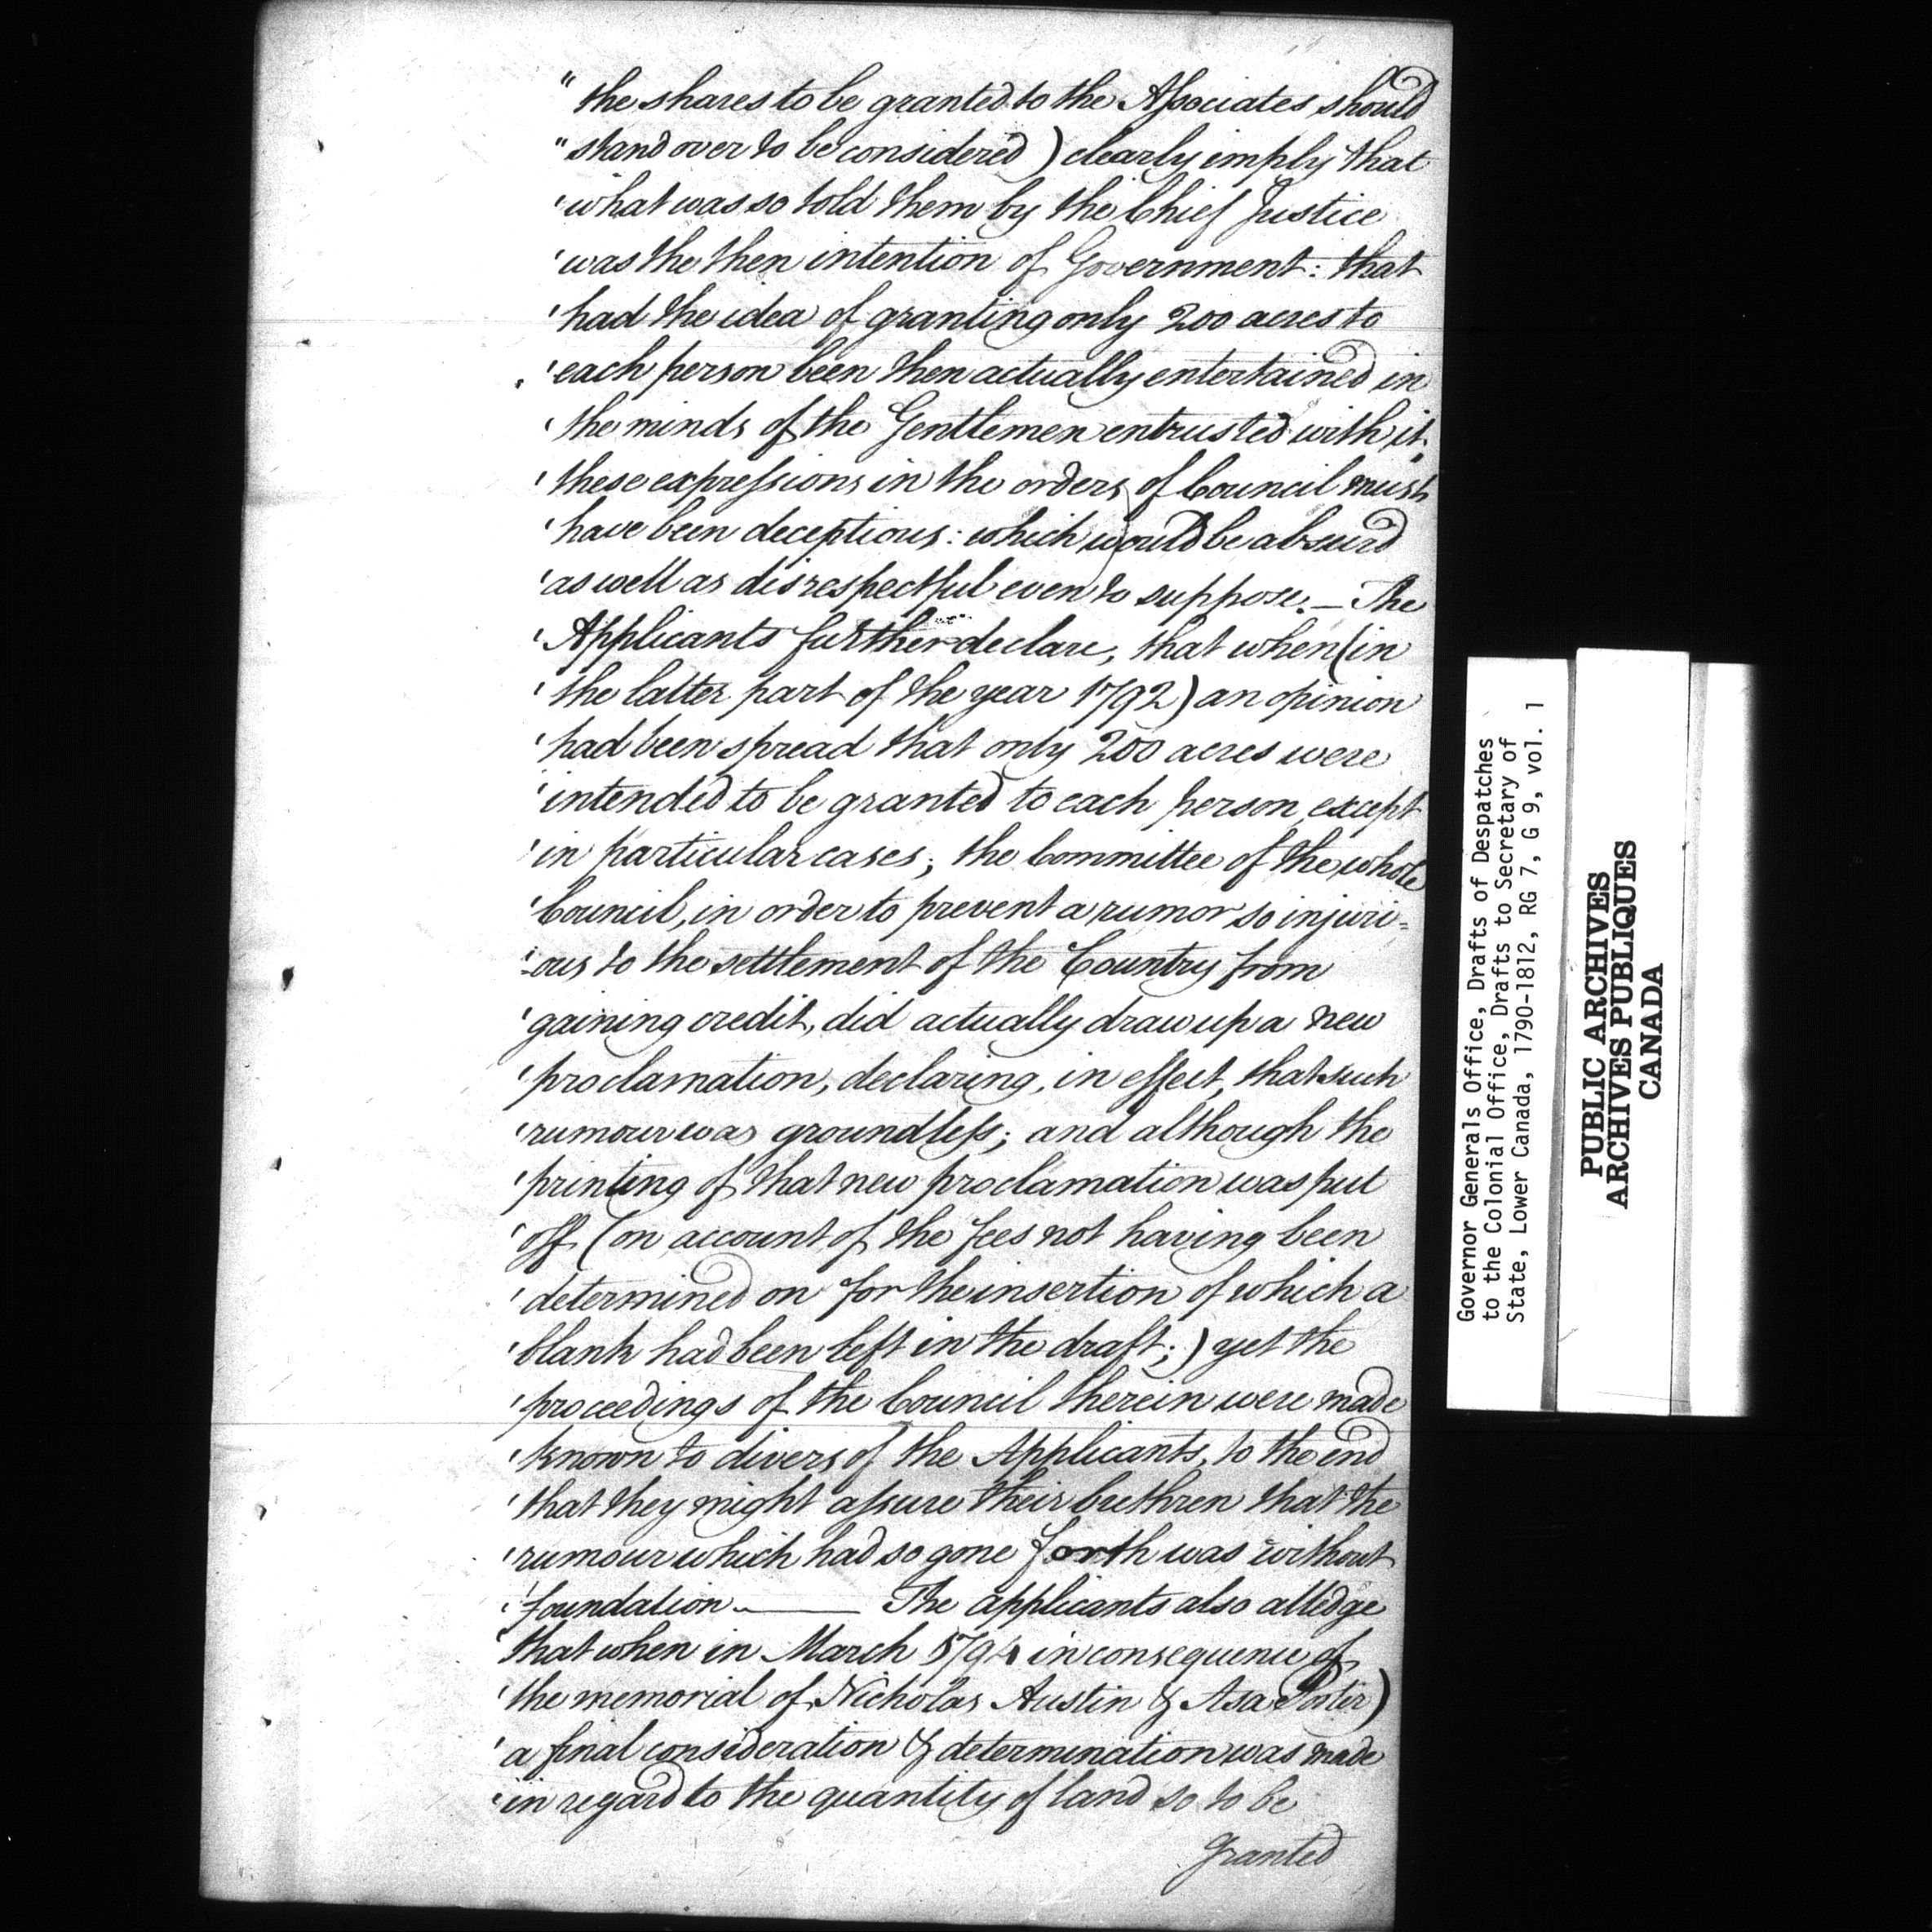 " the shares to be granted to the Associates should
" stand over to be considered ) clearly imply that
' what was so told them by the Chief Justice
' was the then intention of Government : that
' had the idea of granting only 200 acres to
' each person been then actually entertained in
' the minds of the Gentlemen entrusted with it,
' these expressions in the orders of Council must
' have been deceptious : which would be absurd
' as well as disrespectful even to suppose. — The
' Applicants further declare, that when (in
' the latter part of the year 1792) an opinion
' had been spread that only 200 acres were
' intended to be granted to each person, except
' in particular cases ; the Committee of the whole
' Council, in order to prevent a rumor so injuri=
' -ous to the settlement of the Country from
' gaining credit, did actually draw up a new
' proclamation, declaring, in effect, that such
' rumour was groundless ; and although the
' printing of that new proclamation was put
' off (on account of the fees not having been
' determined on for the insertion of which a
' blank had been left in the draft ;) yet the
' proceedings of the Council therein were made
' known to divers of the Applicants, to the end
' that they might assure their brethren that the
' rumour which had so gone forth was without
' foundation. —— The applicants also alledge
' that when in March 1794 in consequence of
' the memorial of Nicholas Austin & Asa Porter)
' a final consideration & determination was made
' in regard to the quantity of land so to be
Granted
Governor Generals Office, Drafts of Despatches
to the Colonial Office, Drafts to Secretary of
State, Lower Canada, 1790-1812, RG 7, G 9, vol. 1
PUBLIC ARCHIVES
ARCHIVES PUBLIQUES
CANADA